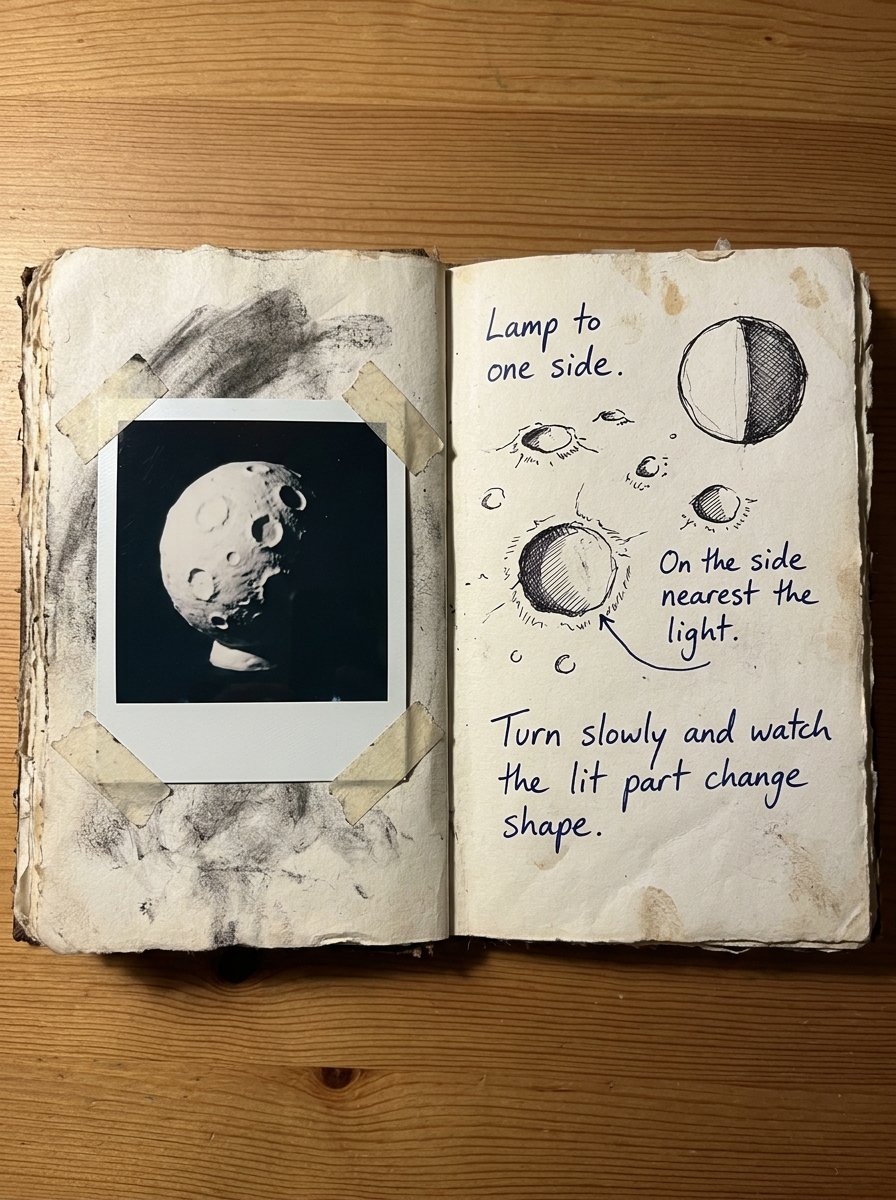 Lamp to
one side.
On the side
nearest the
light.
Turn slowly and watch
the lit part change
shape.